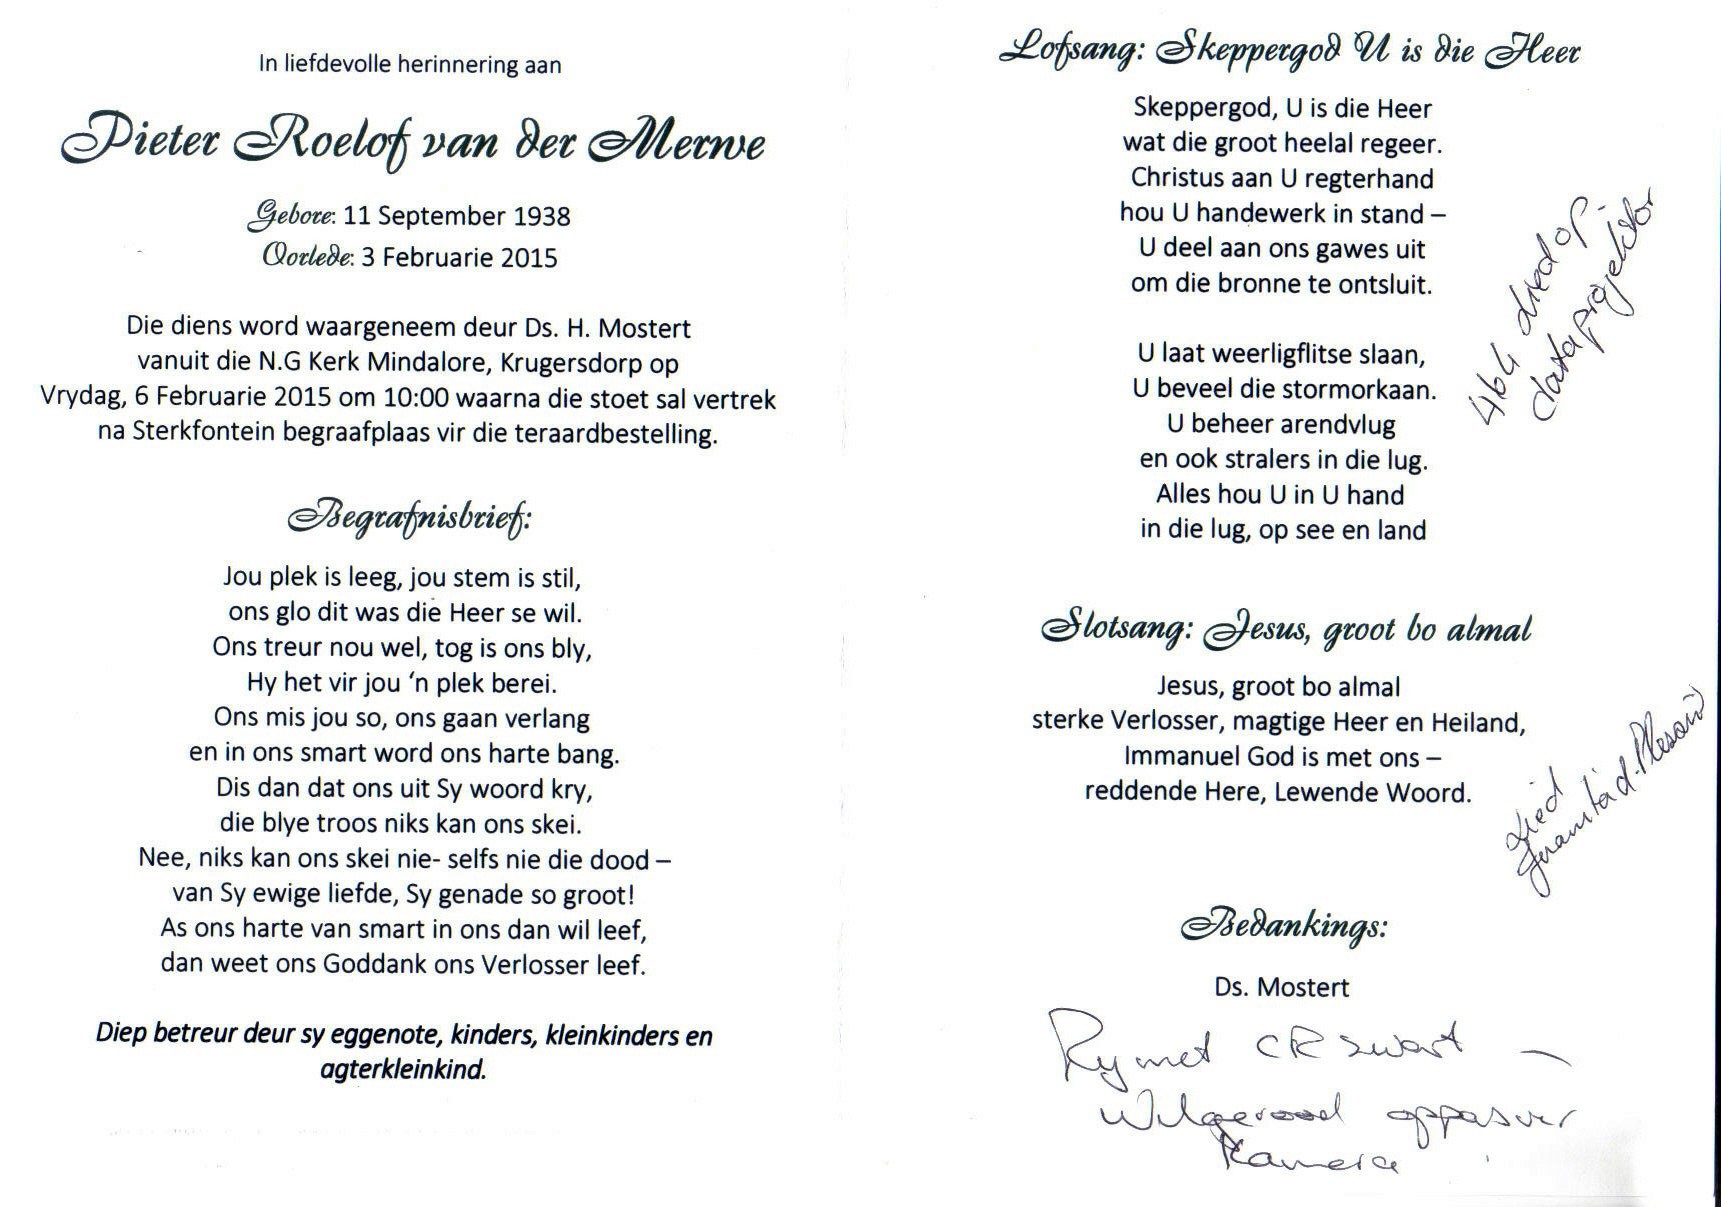 In liefdevolle herinnering aan
Pieter Roelof van der Merwe
Gebore: 11 September 1938
Oorlede: 3 Februarie 2015
Die diens word waargeneem deur Ds. H. Mostert
vanuit die N.G Kerk Mindalore, Krugersdorp op
Vrydag, 6 Februarie 2015 om 10:00 waarna die stoet sal vertrek
na Sterkfontein begraafplaas vir die teraardbestelling.
Begrafnisbrief:
Jou plek is leeg, jou stem is stil,
ons glo dit was die Heer se wil.
Ons treur nou wel, tog is ons bly,
Hy het vir jou ‘n plek berei.
Ons mis jou so, ons gaan verlang
en in ons smart word ons harte bang.
Dis dan dat ons uit Sy woord kry,
die blye troos niks kan ons skei.
Nee, niks kan ons skei nie- selfs nie die dood –
van Sy ewige liefde, Sy genade so groot!
As ons harte van smart in ons dan wil leef,
dan weet ons Goddank ons Verlosser leef.
Diep betreur deur sy eggenote, kinders, kleinkinders en
agterkleinkind.
Lofsang: Skeppergod U is die Heer
Skeppergod, U is die Heer
wat die groot heelal regeer.
Christus aan U regterhand
hou U handewerk in stand –
U deel aan ons gawes uit
om die bronne te ontsluit.
U laat weerligflitse slaan,
U beveel die stormorkaan.
U beheer arendvlug
en ook stralers in die lug.
Alles hou U in U hand
in die lug, op see en land
op -
dataprojektor
Slotsang: Jesus, groot bo almal
Jesus, groot bo almal
sterke Verlosser, magtige Heer en Heiland,
Immanuel God is met ons –
reddende Here, Lewende Woord.
Lied
Bedankings:
Ds. Mostert
Ry met CR Swart –
Wilgerood oppas vir
Kamera